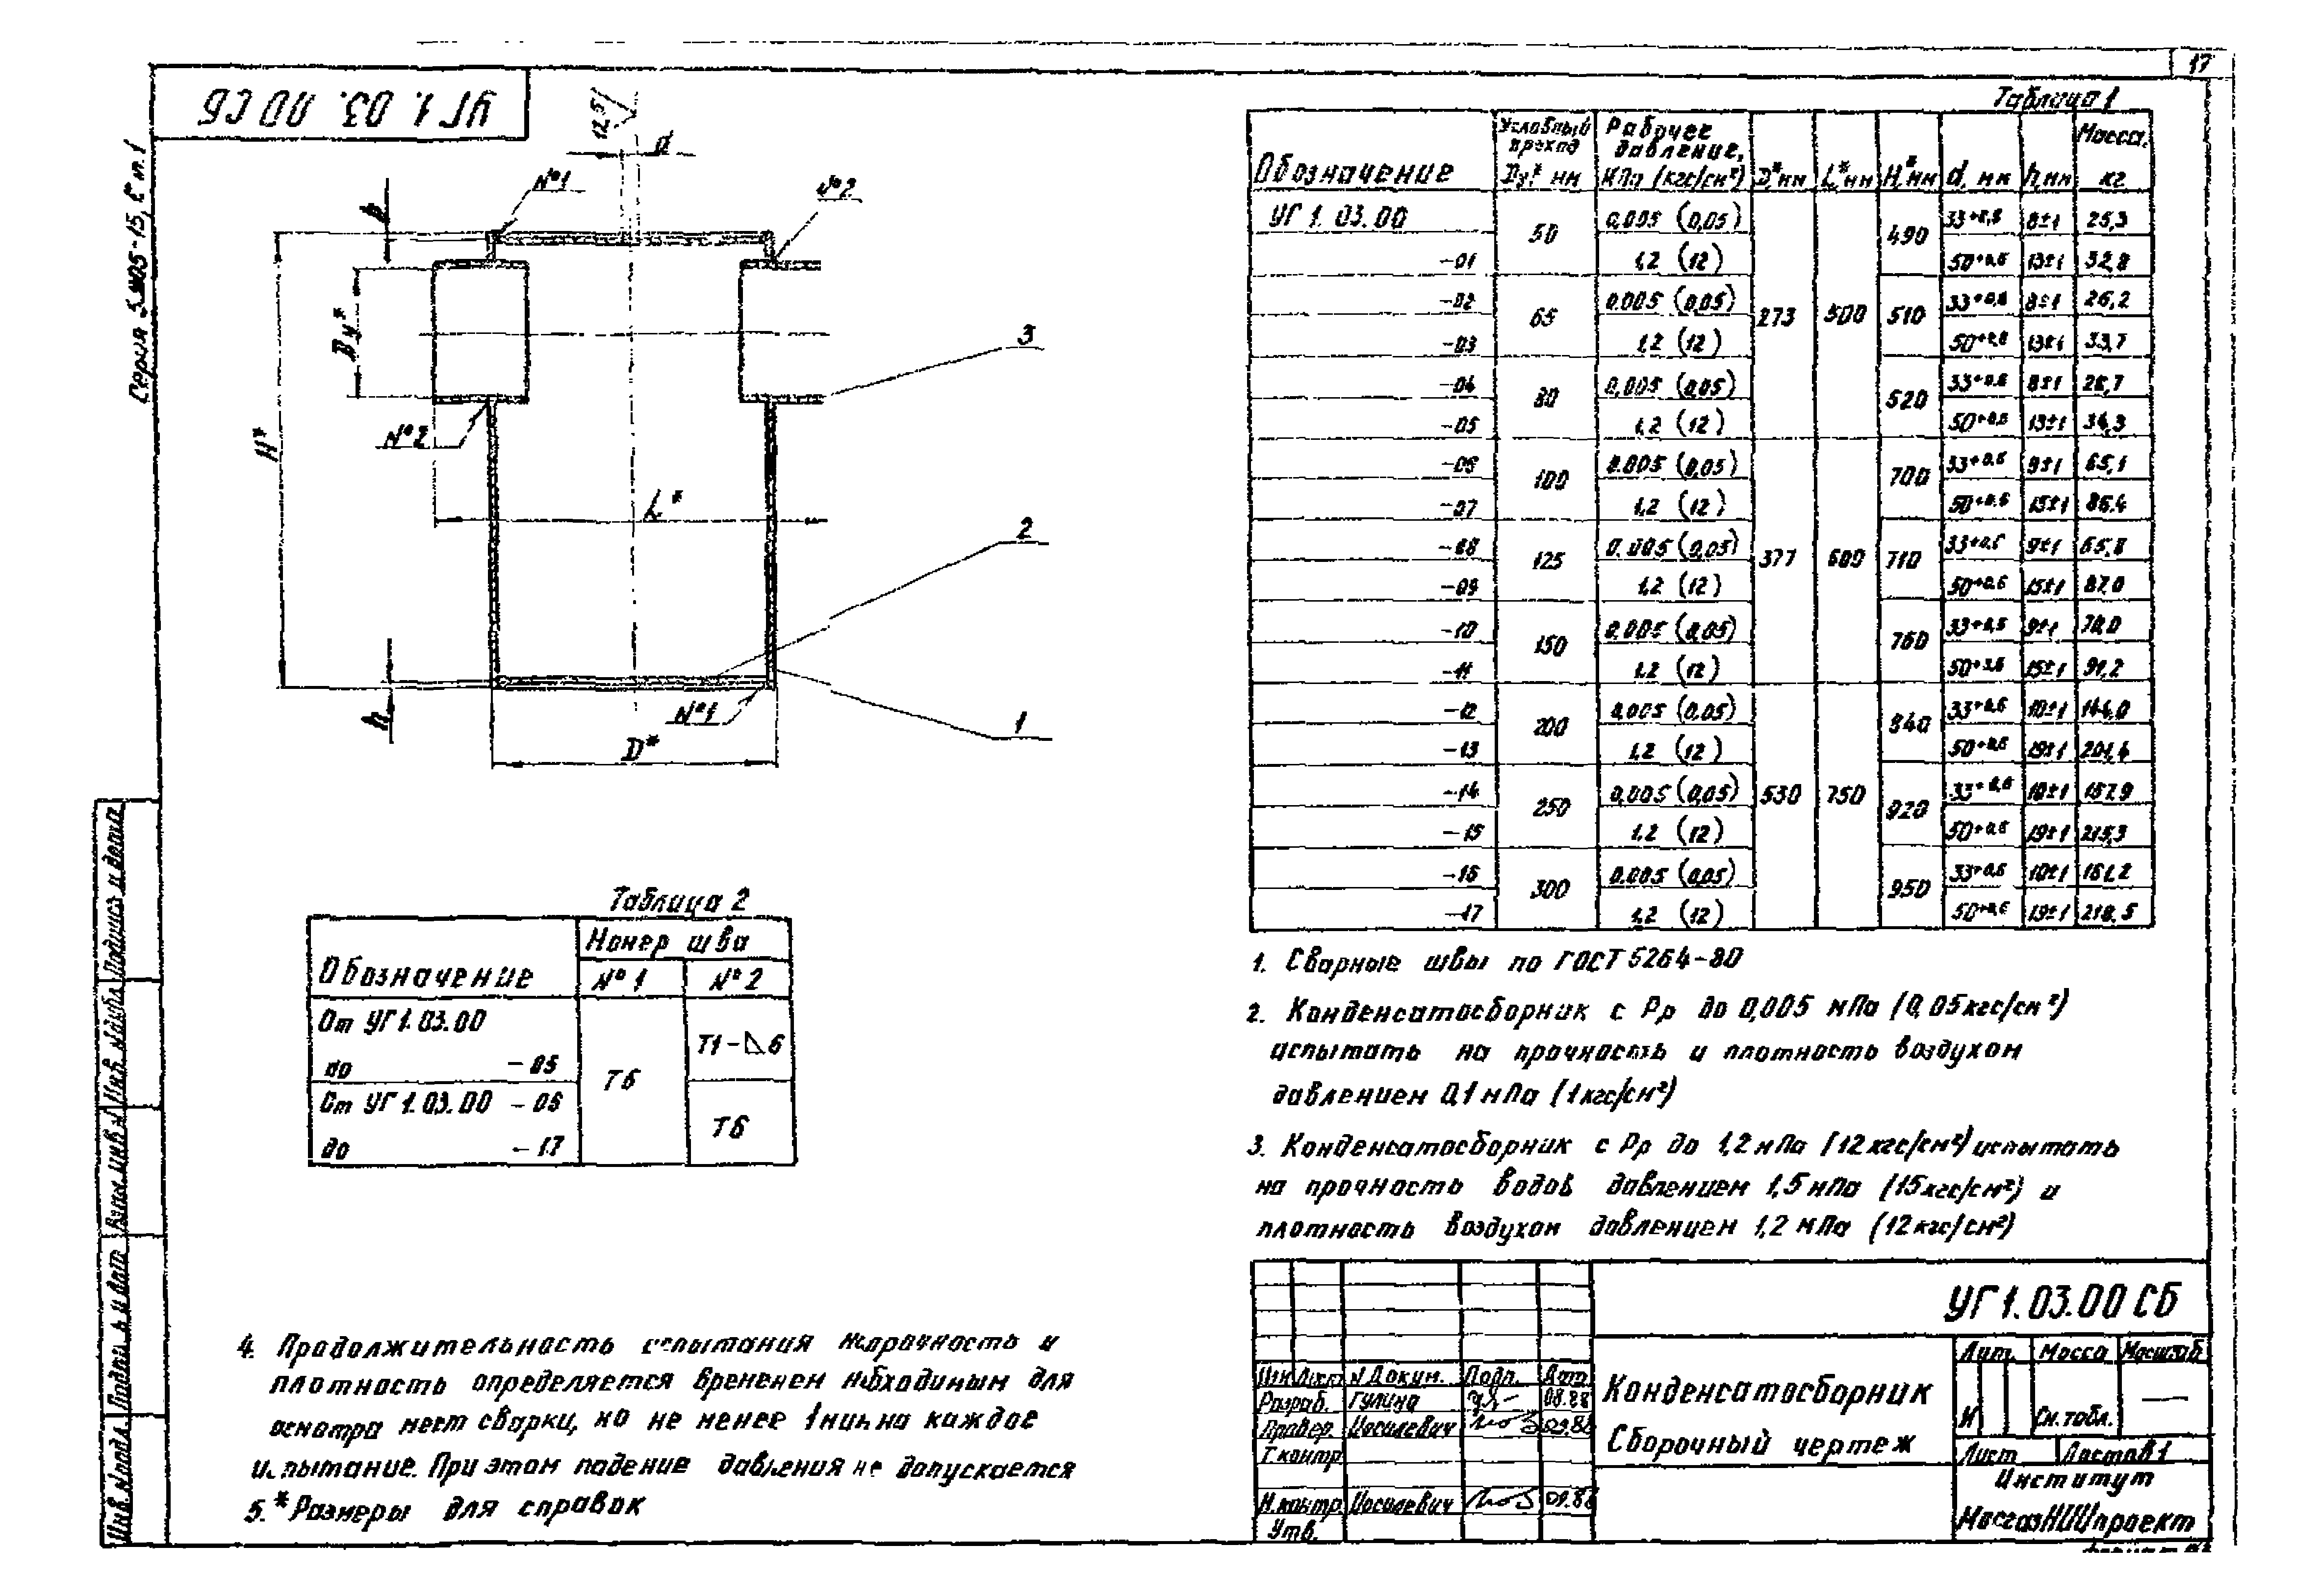 17
УГ 1. 03. 00 СБ
12,5
d
№1
№2
h
Dу*
H*
№2
L*
3
2
1
h
№1
D*
Таблица 1
Обозначение | Условный проход Dу* мм | Рабочее давление, МПа (кгс/см²) | D*, мм | L*, мм | H*, мм | d, мм | h, мм | Масса, кг
УГ 1. 03. 00 | 50 | 0,005 (0,05) | 273 | 500 | 490 | 33+0,6 | 8±1 | 25,3
-01 | 1,2 (12) | 50+0,6 | 13±1 | 32,8
-02 | 65 | 0.005 (0,05) | 510 | 33+0,6 | 8±1 | 26,2
-03 | 1,2 (12) | 50+0,6 | 13±1 | 33,7
-04 | 80 | 0,005 (0,05) | 520 | 33+0,6 | 8±1 | 26,7
-05 | 1,2 (12) | 50+0,6 | 13±1 | 34,3
-06 | 100 | 0.005 (0,05) | 377 | 600 | 700 | 33+0,6 | 9±1 | 65,1
-07 | 1,2 (12) | 50+0,6 | 15±1 | 86.4
-08 | 125 | 0.005 (0,05) | 710 | 33+0,6 | 9±1 | 65,8
-09 | 1,2 (12) | 50+0,6 | 15±1 | 87,0
-10 | 150 | 0.005 (0,05) | 760 | 33+0,6 | 9±1 | 70,0
-11 | 1,2 (12) | 50+0,6 | 15±1 | 91,2
-12 | 200 | 0,005 (0,05) | 530 | 750 | 840 | 33+0,6 | 10±1 | 144,0
-13 | 1,2 (12) | 50+0,6 | 19±1 | 201,4
-14 | 250 | 0,005 (0,05) | 920 | 33+0,6 | 10±1 | 157,9
-15 | 1,2 (12) | 50+0,6 | 19±1 | 215,3
-16 | 300 | 0.005 (0,05) | 950 | 33+0,6 | 10±1 | 161,2
-17 | 1,2 (12) | 50+0,6 | 19±1 | 218,5
Таблица 2
Обозначение | Номер шва
№ 1 | № 2
От УГ 1. 03. 00
до - 05 | Т6 | Т1-◺6
От УГ 1. 03. 00 - 06
до - 17 | Т6
1. Сварные швы по ГОСТ 5264-80
2. Конденсатосборник с Рр до 0,005 мПа (0,05кгс/см²)
испытать на прочность и плотность воздухом
давлением 0,1 мПа (1кгс/см²)
3. Конденсатосборник с Рр до 1,2 мПа (12кгс/см²) испытать
на прочность водой давлением 1,5 мПа (15кгс/см²) и
плотность воздухом давлением 1,2 мПа (12кгс/см²)
4. Продолжительность испытания на прочность и
плотность определяется временем необходимым для
осмотра мест сварки, но не менее 1мин на каждое
испытание. При этом падение давления не допускается
5.* Размеры для справок
УГ 1. 03. 00 СБ
Конденсатосборник
Сборочный чертеж
Лит. Масса Масштаб
И См. табл. —
Лист Листов 1
Институт
МосгазНИИпроект
Изм. Лист № Докум. Подп. Дата
Разраб. Гулина 08.88
Провер. Иоселевич 09.88
Т.контр
Н.контр. Иоселевич 09.88
Утв.
Инв. № подл.
Подпись и дата
Взам. инв. №
Инв. № дубл.
Подпись и дата